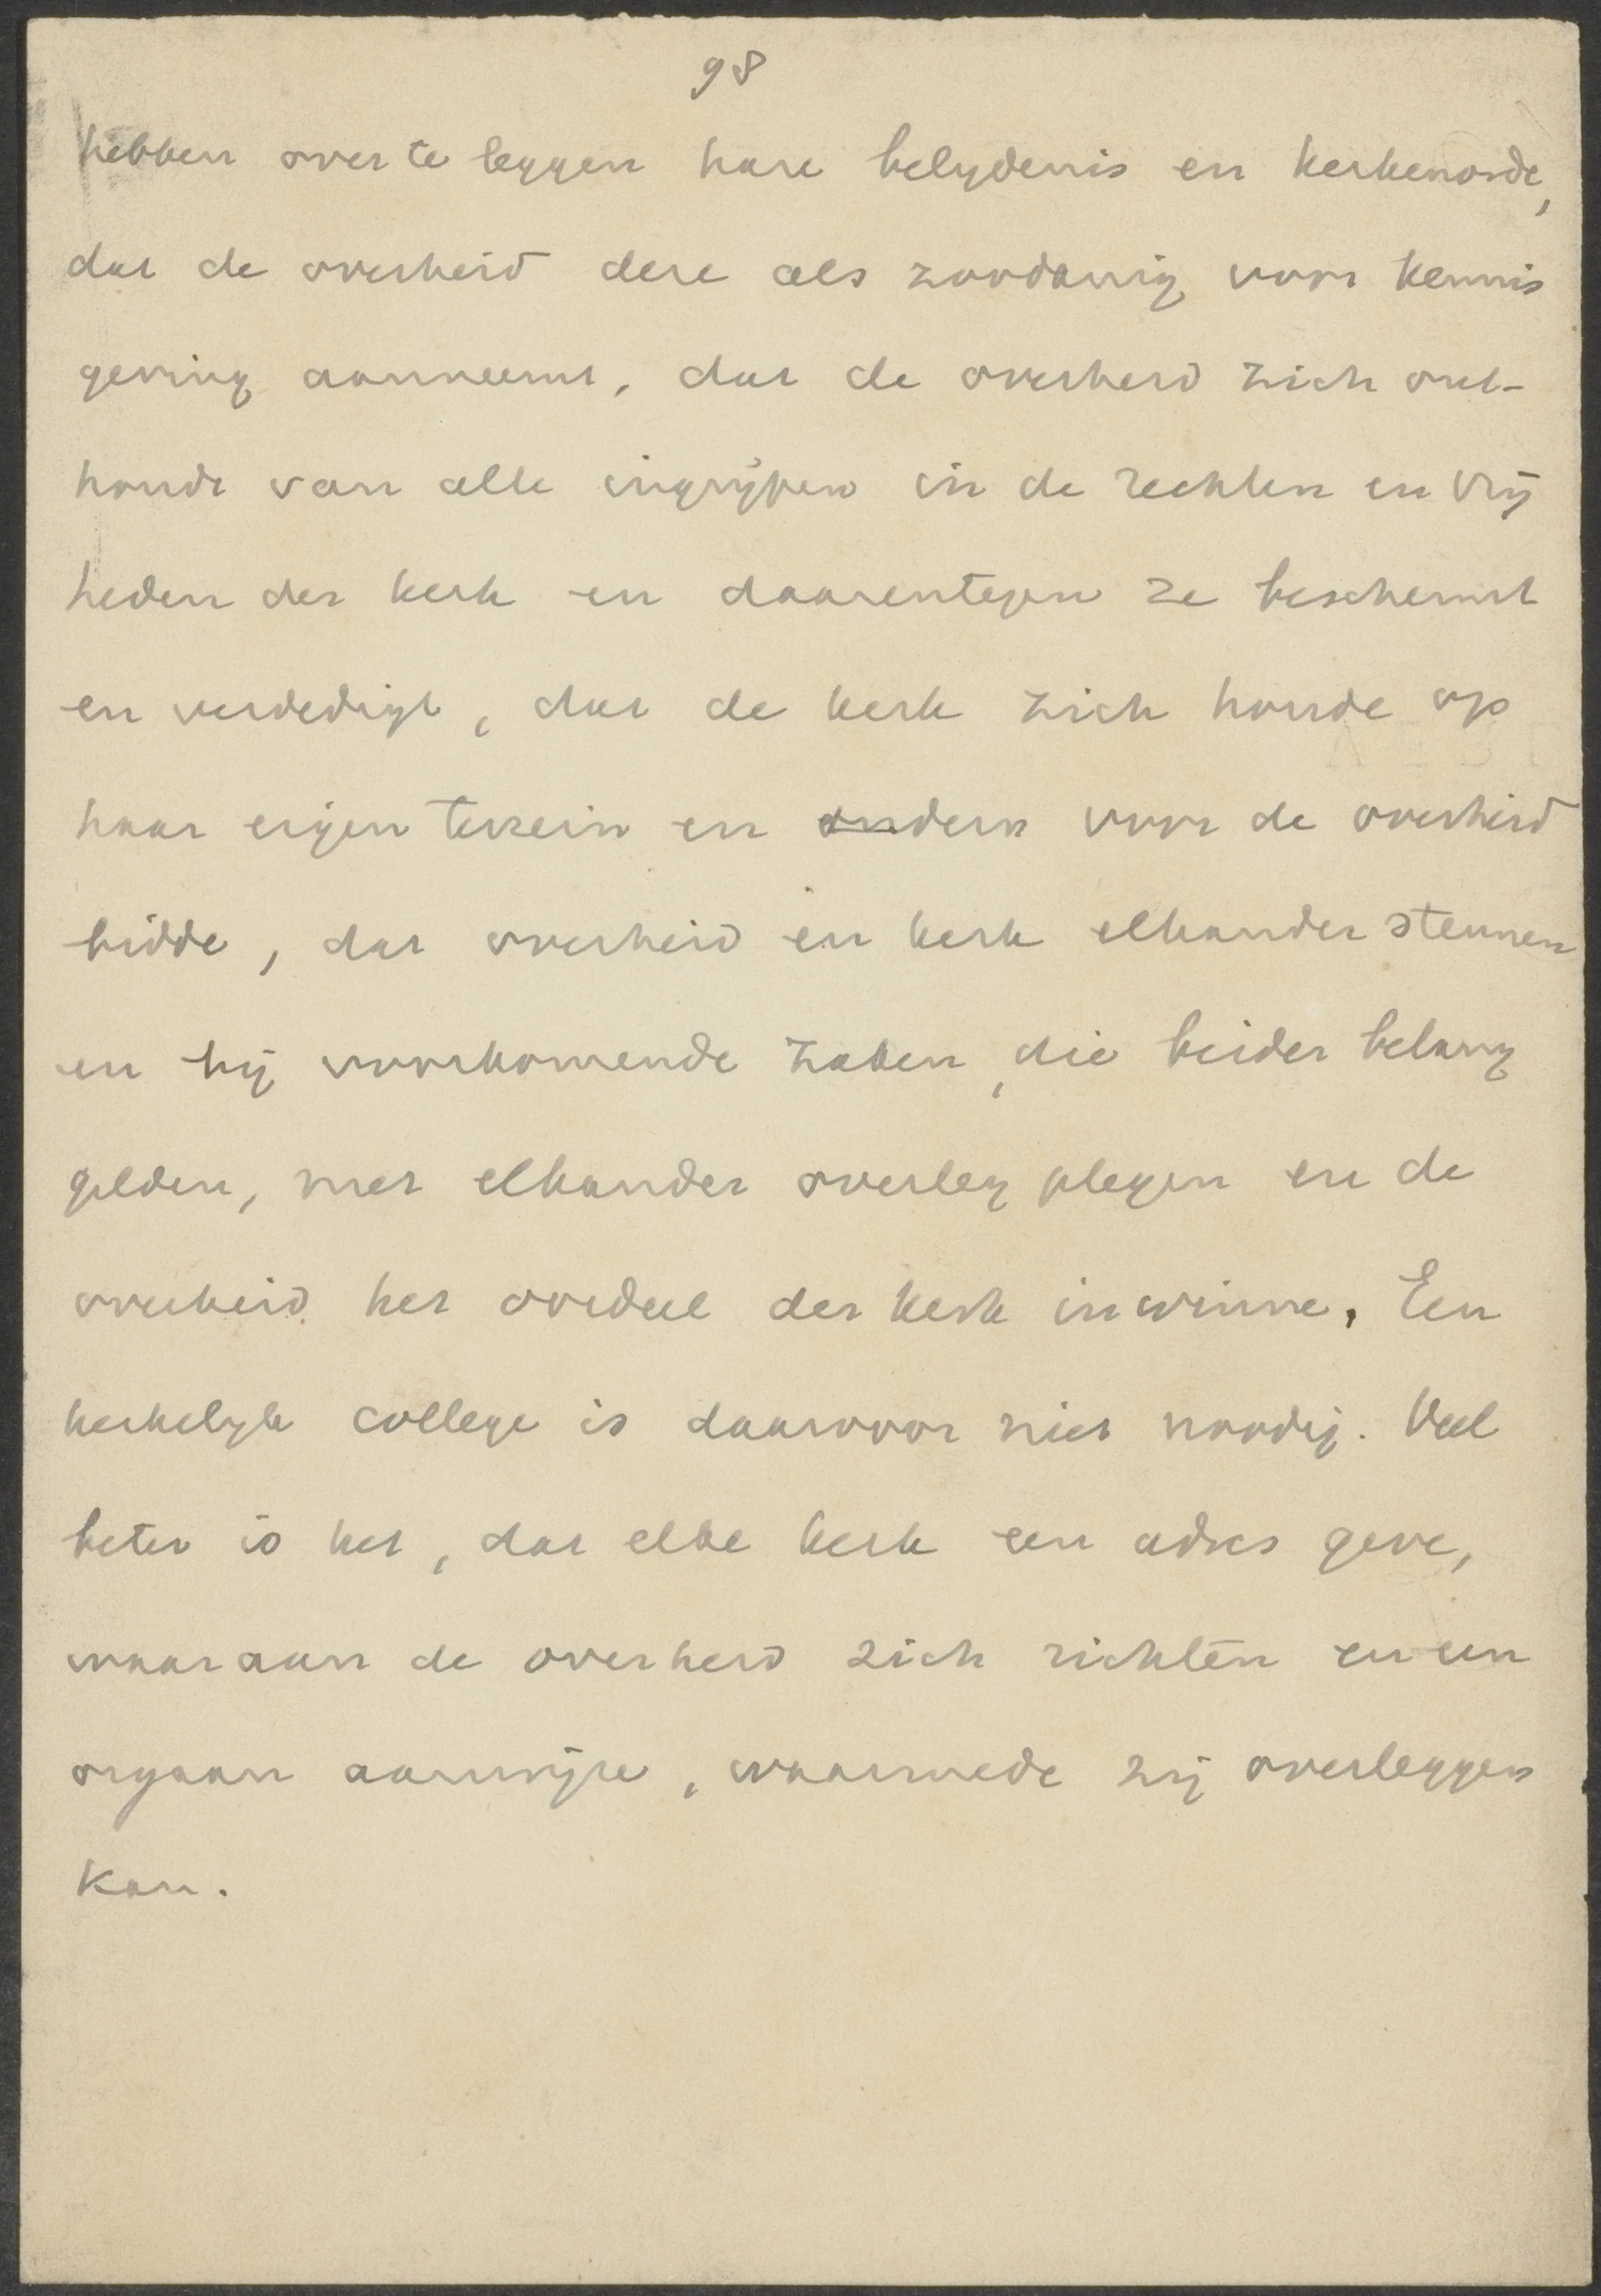 98
hebben over te leggen hare belydenis en kerkenorde,
dat de overheid deze als zoodanig voor kennis
geving aanneemt, dat de overheid zich ont-
houde van alle ingrijpen in de rechten en vrij
heden der kerk en daarentegen ze beschermt
en verdedigt, dat de kerk zich houde op
haar eigen terrein en voor de overheid
bidde, dat overheid en kerk elkander steunen
en bij voorkomende zaken, die beider belang
gelden, met elkander overleg plegen en de
overheid het oordeel der kerk inwinne. Een
kerkelyk college is daarvoor niet noodig. Veel
beter is het, dat elke kerk een adres geve,
waaraan de overheid zich richten en een
orgaan aanwijze, waarmede zij overleggen
kan.